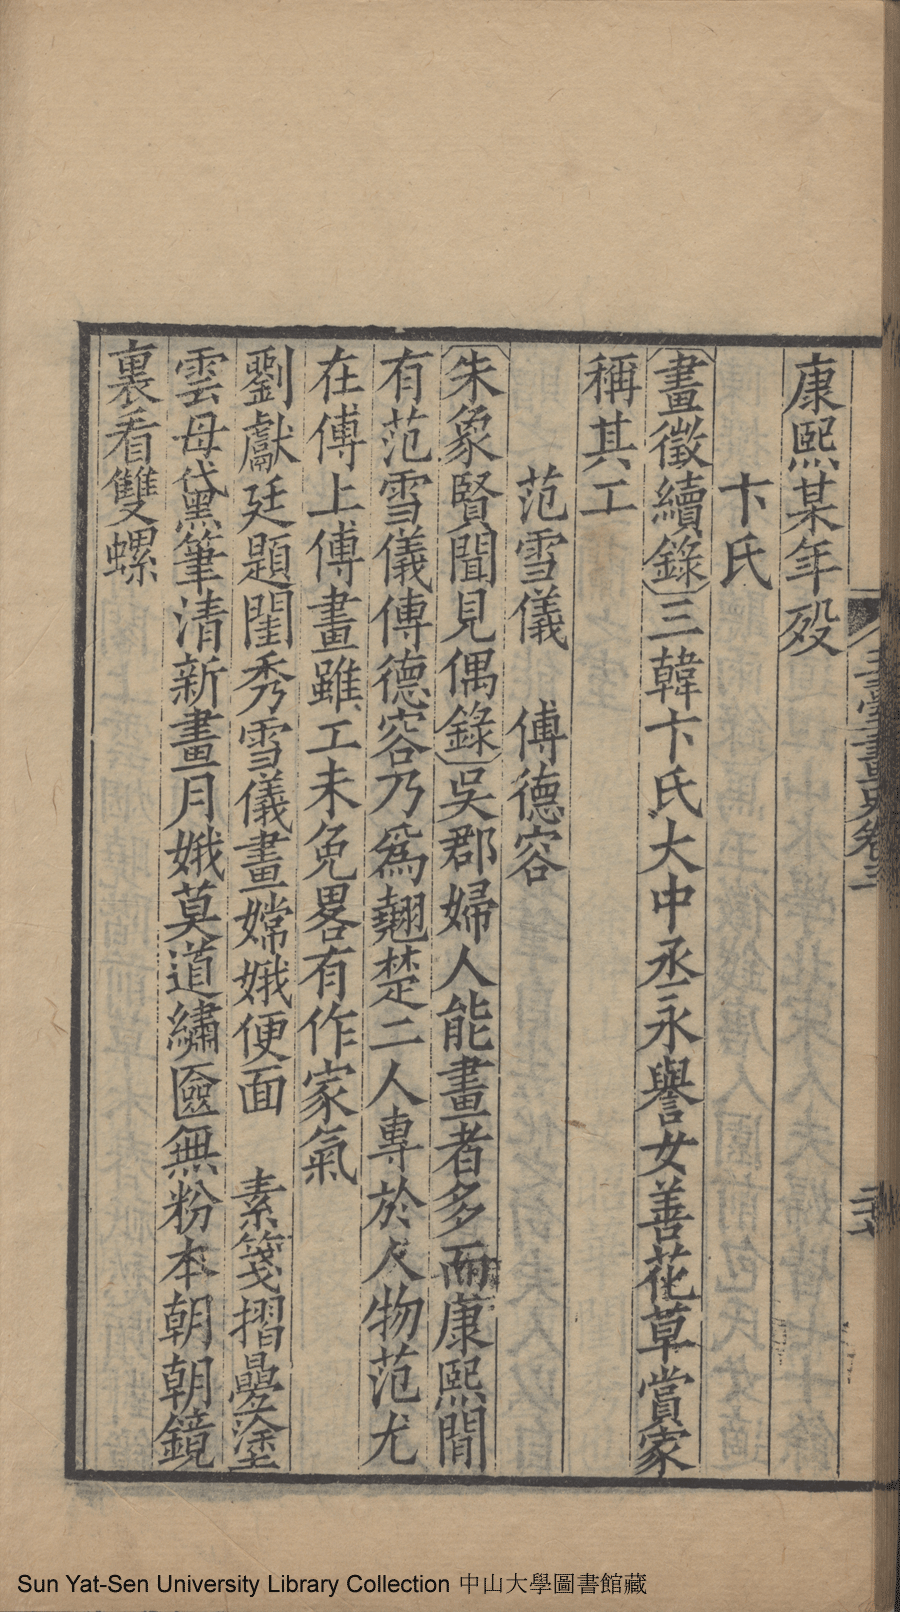 康熙某年殁
卞氏
畫徵續錄三韓卞氏大中丞永譽女善花草賞家
稱其工
范雪儀　傅德容
朱象賢聞見偶錄吳郡婦人能畫者多而康熙間
有范雪儀傅德容乃爲翹楚二人專於人物范尤
在傅上傅畫雖工未免畧有作家氣
劉獻廷題閨秀雪儀畫嫦娥便面　素箋摺疊塗
雲母黛筆清新畫月娥莫道繡匳無粉本朝朝鏡
裏看雙螺
玉臺畫史卷三
Sun Yat-Sen University Library Collection 中山大學圖書館藏